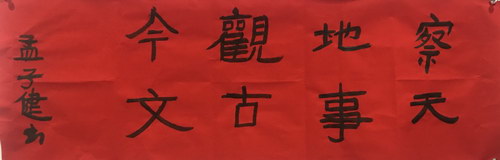 察天
地事
觀古
今文
孟子健书